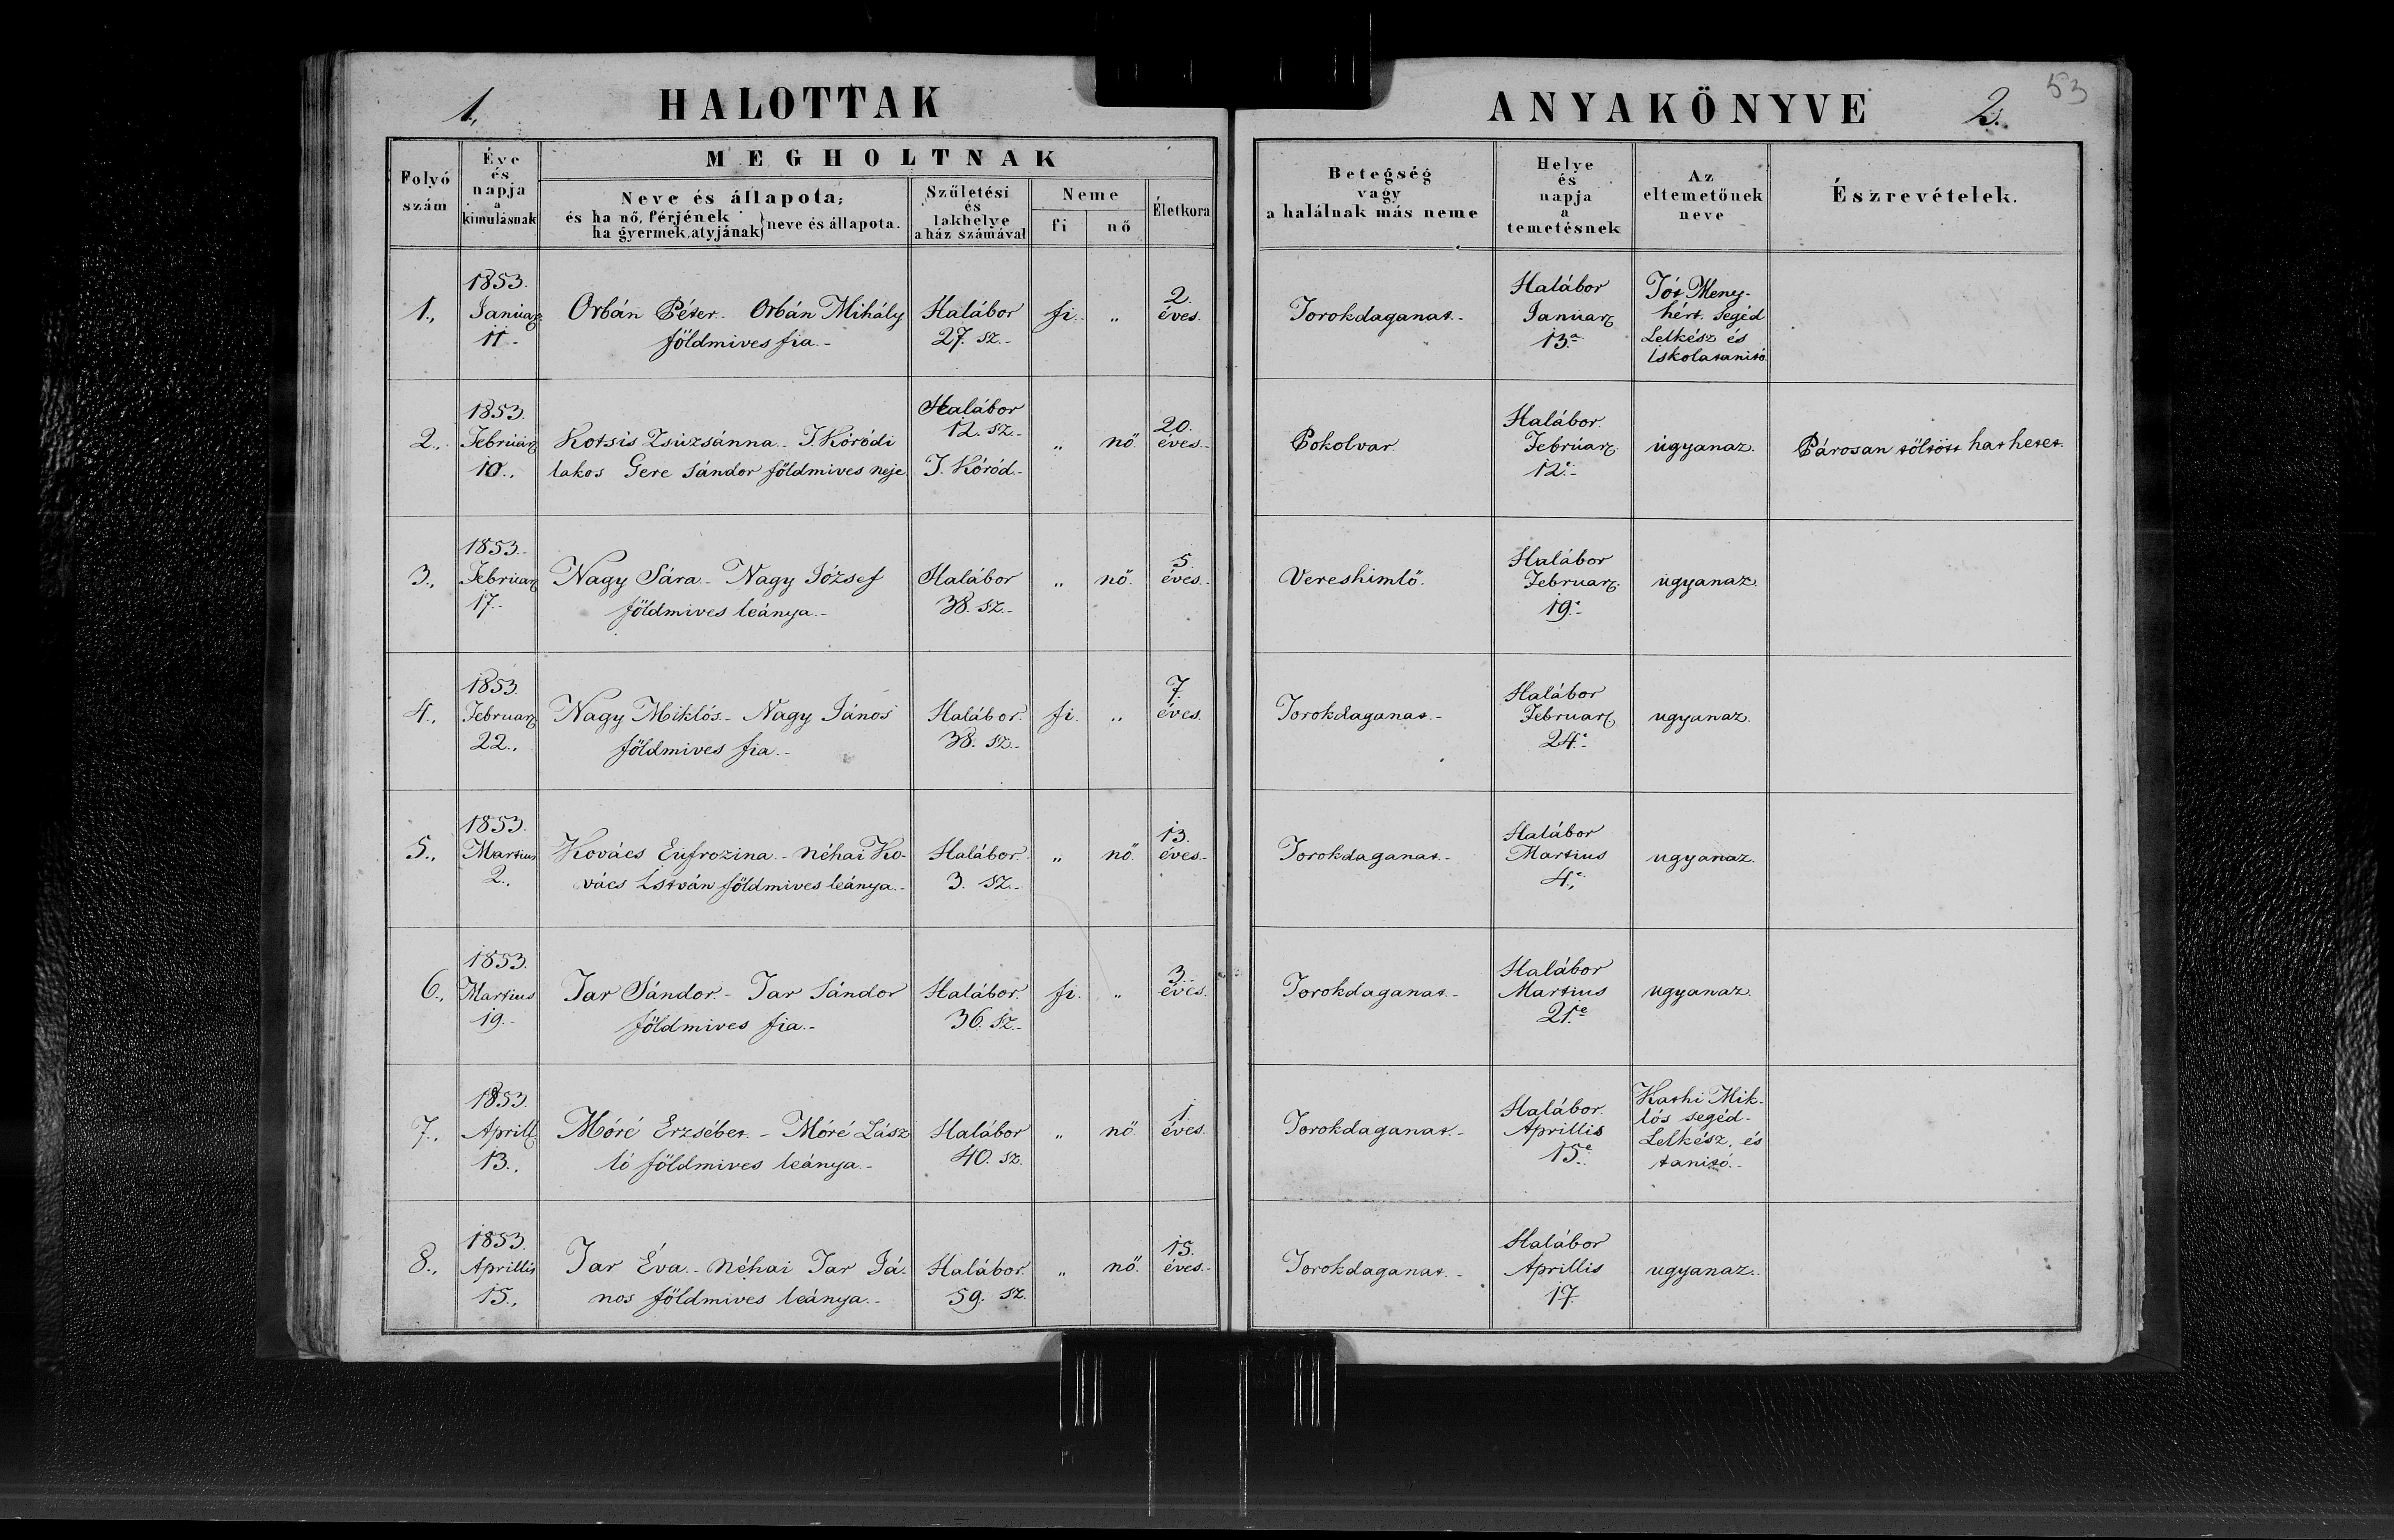 1.,
HALOTTAK
ANYAKÖNYVE
2.
53
Folyó
szám
Éve
és
napja
a
kimulásnak
MEGHOLTNAK
Neve és állapota;
és ha nő, férjének
ha gyermek, atyjának} neve és állapota.
Születési
és
lakhelye
a ház számával
Neme
fi
nő
Életkora
Betegség
vagy
a halálnak más neme
Helye
és
napja
a
temetésnek
Az
eltemetőnek
neve
Észrevételek.
1.,
1853.
Januar
11.-
Orbán Péter.- Orbán Mihály
földmives fia.-
Halábor
27. sz.-
fi.
"
2.
éves.
Torokdaganat.-
Halábor
Januar
13.a
Tót Meny-
hért. segéd
Lelkész és
Iskolatanitó.
2.,
1853.
Február
10.,
Kotsis Zsuzsánna.- T. Kóródi
lakos Gere Sándor földmives neje
Halábor
12. sz.-
T. Kóród.-
"
nő.
20.
éves.-
Pokolvar.
Halábor.
Február
12.-
ugyanaz.
Párosan töltött hat hetet.
3.,
1853.-
Február
17.-
Nagy Sára.- Nagy József
földmives leánya.-
Halábor
38. sz.-
"
nő.
5.
éves.-
Vereshimlő.
Halábor
Februar
19.-
ugyanaz.
4.,
1853.
Februar
22.,
Nagy Miklós.- Nagy János
földmives fia.-
Halábor.
38. sz.-
fi.
"
7.
éves.
Torokdaganat.-
Halábor
Februar
24.-
ugyanaz.
5.,
1853.
Martius
2.,
Kovács Eufrozina.- néhai Ko-
vács István földmives leánya.-
Halábor.
3. sz.-
"
nő.
13.
éves.-
Torokdaganat.-
Halábor
Martius
4.,
ugyanaz.
6.,
1853.
Martius
19.-
Tar Sándor.- Tar Sándor
földmives fia.-
Halábor.
36. sz.-
fi.
"
3.
éves.
Torokdaganat.-
Halábor
Martius
21.e
ugyanaz.
7.,
1853.
Aprill
13.,
Móré Erzsébet.- Móré Lász
ló földmives leánya.-
Halábor
40. sz.
"
nő.
1.
éves.
Torokdaganat.-
Halábor.
Aprillis
15.e
Kathi Mik-
lós segéd-
Lelkész, és
tanitó.-
8.,
1853.
Aprillis
15.,
Tar Éva.- néhai Tar Já-
nos földmives leánya.-
Halábor.
59. sz.
"
nő.
15.
éves.-
Torokdaganat.-
Halábor
Aprillis
17.
ugyanaz.